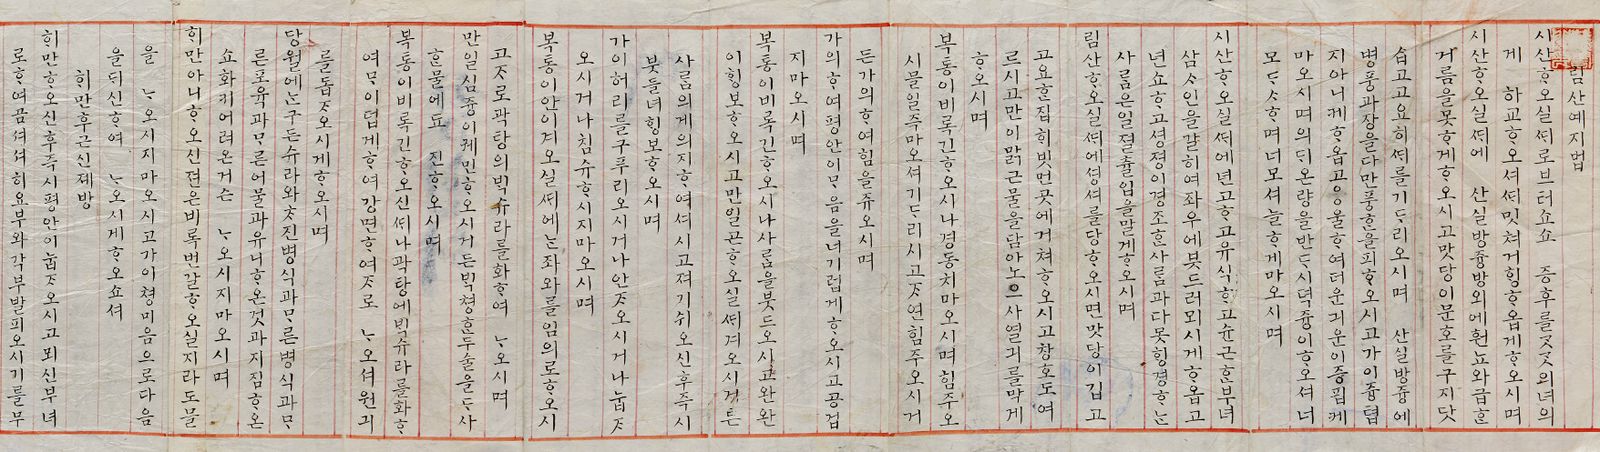 림산예지법
시산ᄒᆞ오실ᄯᅢ로브터쇼쇼 증후를ᄌᆞᄌᆞ의녀의
게 하교ᄒᆞ오셔ᄯᅢ밋쳐거ᄒᆡᆼᄒᆞ옵게ᄒᆞ오시며
시산ᄒᆞ오실ᄯᅢ에 산실방즁방외에훤뇨와급ᄒᆞᆫ
거름을못ᄒᆞ게ᄒᆞ오시고맛당이문호를구지닷
습고고요히ᄯᅢ를기ᄃᆞ리오시며 산실방즁에
병풍과쟝을다만풍ᄒᆞᆫ을피ᄒᆞ오시고가이즁텹
지아니케ᄒᆞ옵고으울ᄒᆞ여더운긔운이증핍케
마오시며의ᄃᆡ온량을반ᄃᆞ시덕즁이ᄒᆞ오셔너
모ᄃᆞᄉᆞᄒᆞ며너모셔늘ᄒᆞ게마오시며
시산ᄒᆞ오실ᄯᅢ에년고ᄒᆞ고유식ᄒᆞ고슌근ᄒᆞᆫ부녀
삼ᄉᆞ인을ᄀᆞᆯ희여좌우에븟드러뫼시게ᄒᆞ옵고
년쇼ᄒᆞ고셩졍이경조ᄒᆞᆫ사ᄅᆞᆷ과다못ᄒᆡᆼ경ᄒᆞᄂᆞᆫ
사ᄅᆞᆷ은일졀츌입을말게ᄒᆞ오시며
림산ᄒᆞ오실ᄯᅢ에셩셔를당ᄒᆞ오시면맛당이깁고
고요ᄒᆞᆫ집ᄒᆡ빗먼곳에거쳐ᄒᆞ오시고창호도여
르시고만이ᄆᆞᆰ근물을담아노으사열긔를막게
ᄒᆞ오시며
복통이비록긴ᄒᆞ오시나경동치마오시며힘주오
시믈일즉마오셔기ᄃᆞ리시고ᄌᆞ연힘주오시거
든가의ᄒᆞ여힘을쥬오시며
가의ᄒᆞ여평안이ᄆᆞ음을너기럽게ᄒᆞ오시고공겁
지마오시며
복통이비록긴ᄒᆞ오시나사ᄅᆞᆷ을븟드오시고완완
이ᄒᆡᆼ보ᄒᆞ오시고만일곤ᄒᆞ오실ᄯᅢ겨오시거든
사ᄅᆞᆷ의게의지ᄒᆞ여셔시고져기쉬오신후즉시
븟들녀ᄒᆡᆼ보ᄒᆞ오시며
가이허리를구푸리오시거나안ᄌᆞ오시거나눕ᄌᆞ
오시거나침슈ᄒᆞ시지마오시며
복통이안이겨오실ᄯᅢ에ᄂᆞᆫ좌와를임의로ᄒᆞ오시
고ᄌᆞ로곽탕의ᄇᆡᆨ슈라를화ᄒᆞ여 ᄂᆞ오시며
만일심즁이케민ᄒᆞ오시거든ᄇᆡᆨ쳥ᄒᆞᆫ두술을ᄃᆞ사
ᄒᆞᆫ물에ᄯᅩ 진ᄒᆞ오시며
복통이비록긴ᄒᆞ오신ᄯᅢ나곽탕에ᄇᆡᆨ슈라를화ᄒᆞ
여ᄆᆞ이덥게ᄒᆞ여강면ᄒᆞ여ᄌᆞ로 ᄂᆞ오셔원긔
를돕ᄌᆞ오시게ᄒᆞ오시며
당월에ᄂᆞᆫ구든슈라와ᄎᆞ진병식과ᄆᆞ른병식과ᄆᆞ
른포육과ᄆᆞ른어물과유니ᄒᆞ온것과지짐ᄒᆞ온
쇼화키어려온거슨 ᄂᆞ오시지마오시며
ᄒᆡ만아니ᄒᆞ오신젼은비록번갈ᄒᆞ오실지라도믈
을 ᄂᆞ오시지마오시고가이쳥미음으로다음
을ᄃᆡ신ᄒᆞ여 ᄂᆞ오시게ᄒᆞ오쇼셔
ᄒᆡ만후근신졔방
ᄒᆡ만ᄒᆞ오신후즉시평안이눕ᄌᆞ오시고뫼신부녀
로ᄒᆞ여곰셔셔히요부와각부ᄇᆞᆯ피오시기를무